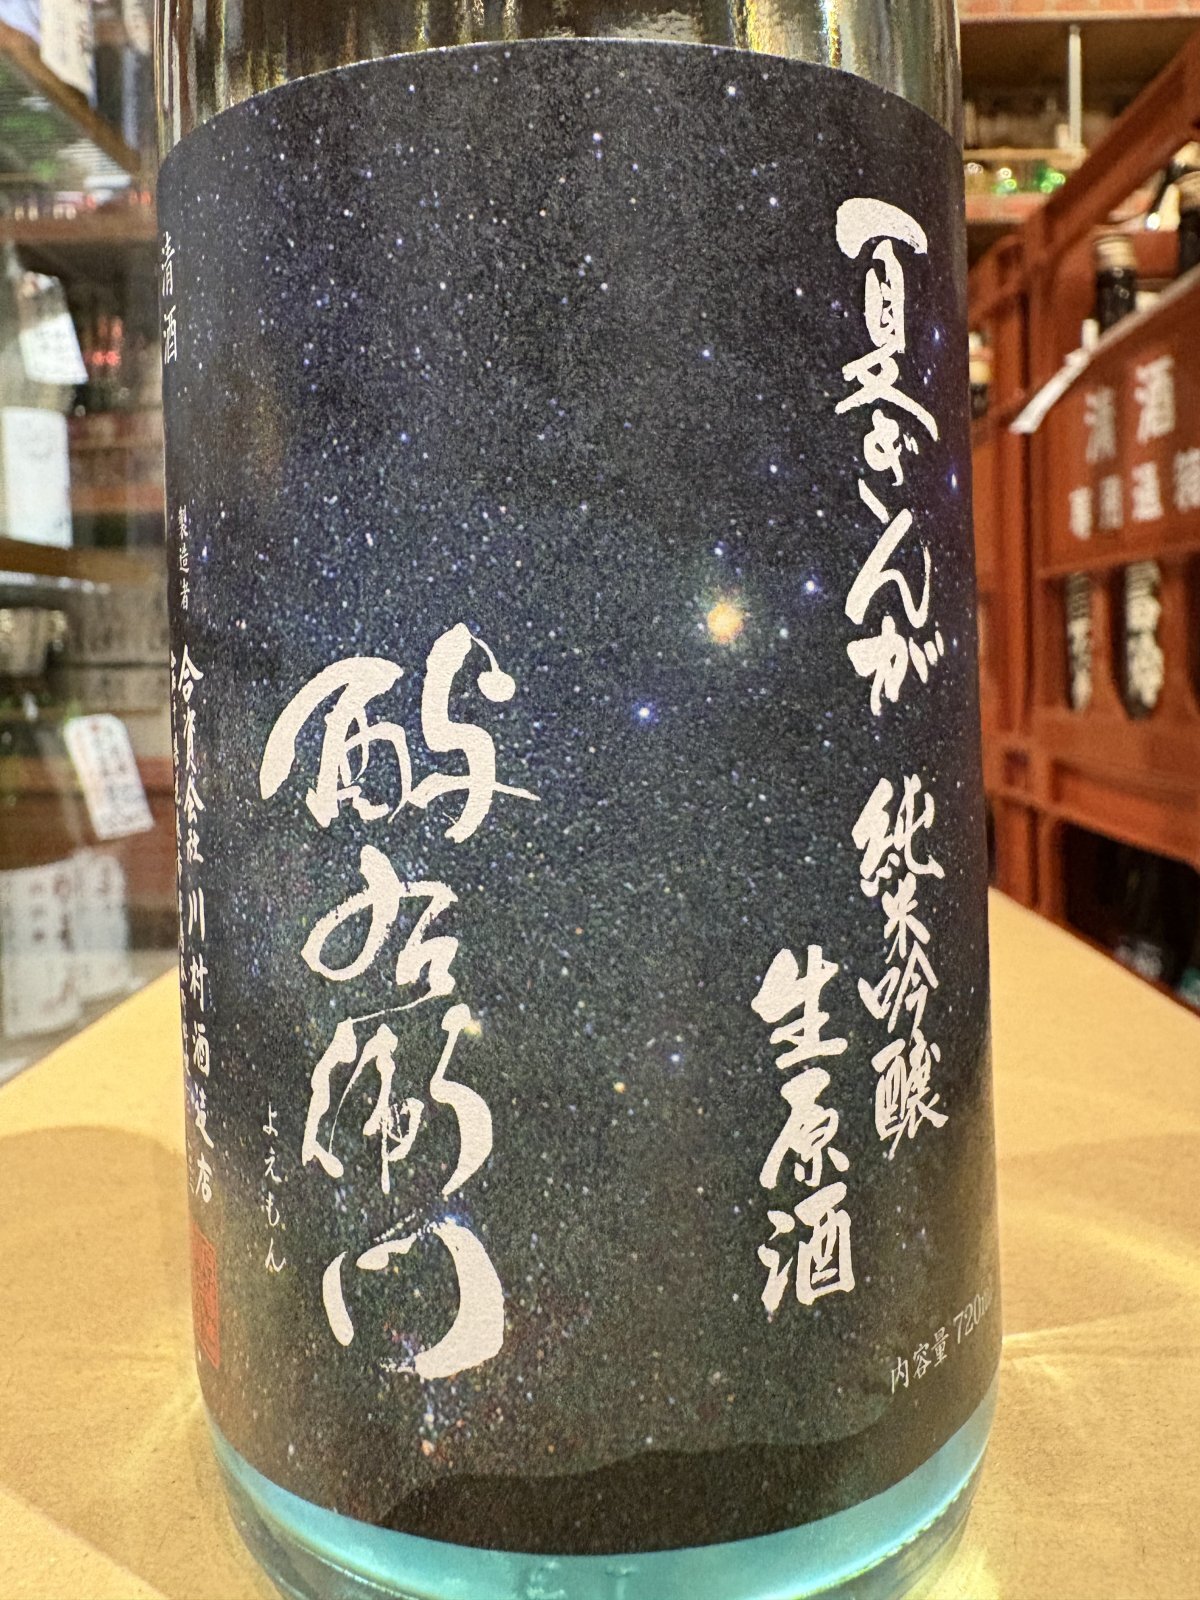 夏ぎんが 純米吟醸
生原酒
酔右衛門
よえもん
清酒
製造者 合資会社川村酒造店
内容量 720ml
清酒
専用通箱